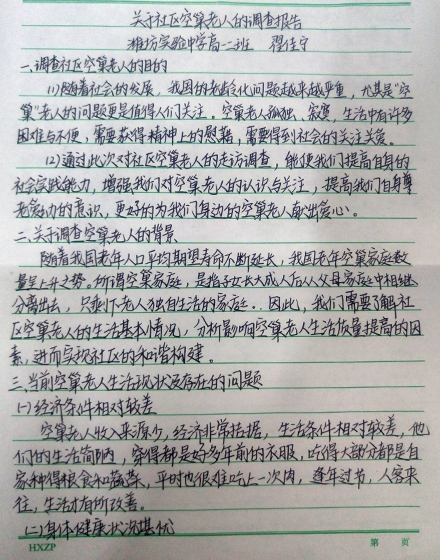 关于社区空巢老人的调查报告
潍坊实验中学高一二班 瞿佳宁
一、调查社区空巢老人的目的
(1)随着社会的发展，我国的老龄化问题越来越严重，尤其是“空
巢”老人的问题更是值得人们关注。空巢老人孤独、寂寞，生活中有许多
困难与不便，需要获得精神上的慰藉，需要得到社会的关注关爱。
(2)通过此次对社区空巢老人的走访调查，能使我们提高自身的
社会实践能力，增强我们对空巢老人的认识与关注，提高我们自身尊
老爱幼的意识，更好的为我们身边的空巢老人献出爱心。
二、关于调查空巢老人的背景
随着我国老年人口平均期望寿命不断延长，我国老年空巢家庭数
量呈上升之势。所谓空巢家庭，是指子女长大成人后从父母家庭中相继
分离出去，只剩下老人独自生活的家庭。因此，我们需要了解社
区空巢老人的生活基本情况，分析影响空巢老人生活质量提高的因
素，进而实现社区的和谐构建。
三、当前空巢老人生活现状及存在的问题
(一)经济条件相对较差
空巢老人收入来源少，经济非常拮据，生活条件相对较差，他
们的生活简陋，穿得都是好多年前的衣服，吃得大部分都是自
家种得粮食和蔬菜，平时也很难吃上一次肉，逢年过节，人客来
往，生活才有所改善。
(二)身体健康状况堪忧
HXZP 第 页